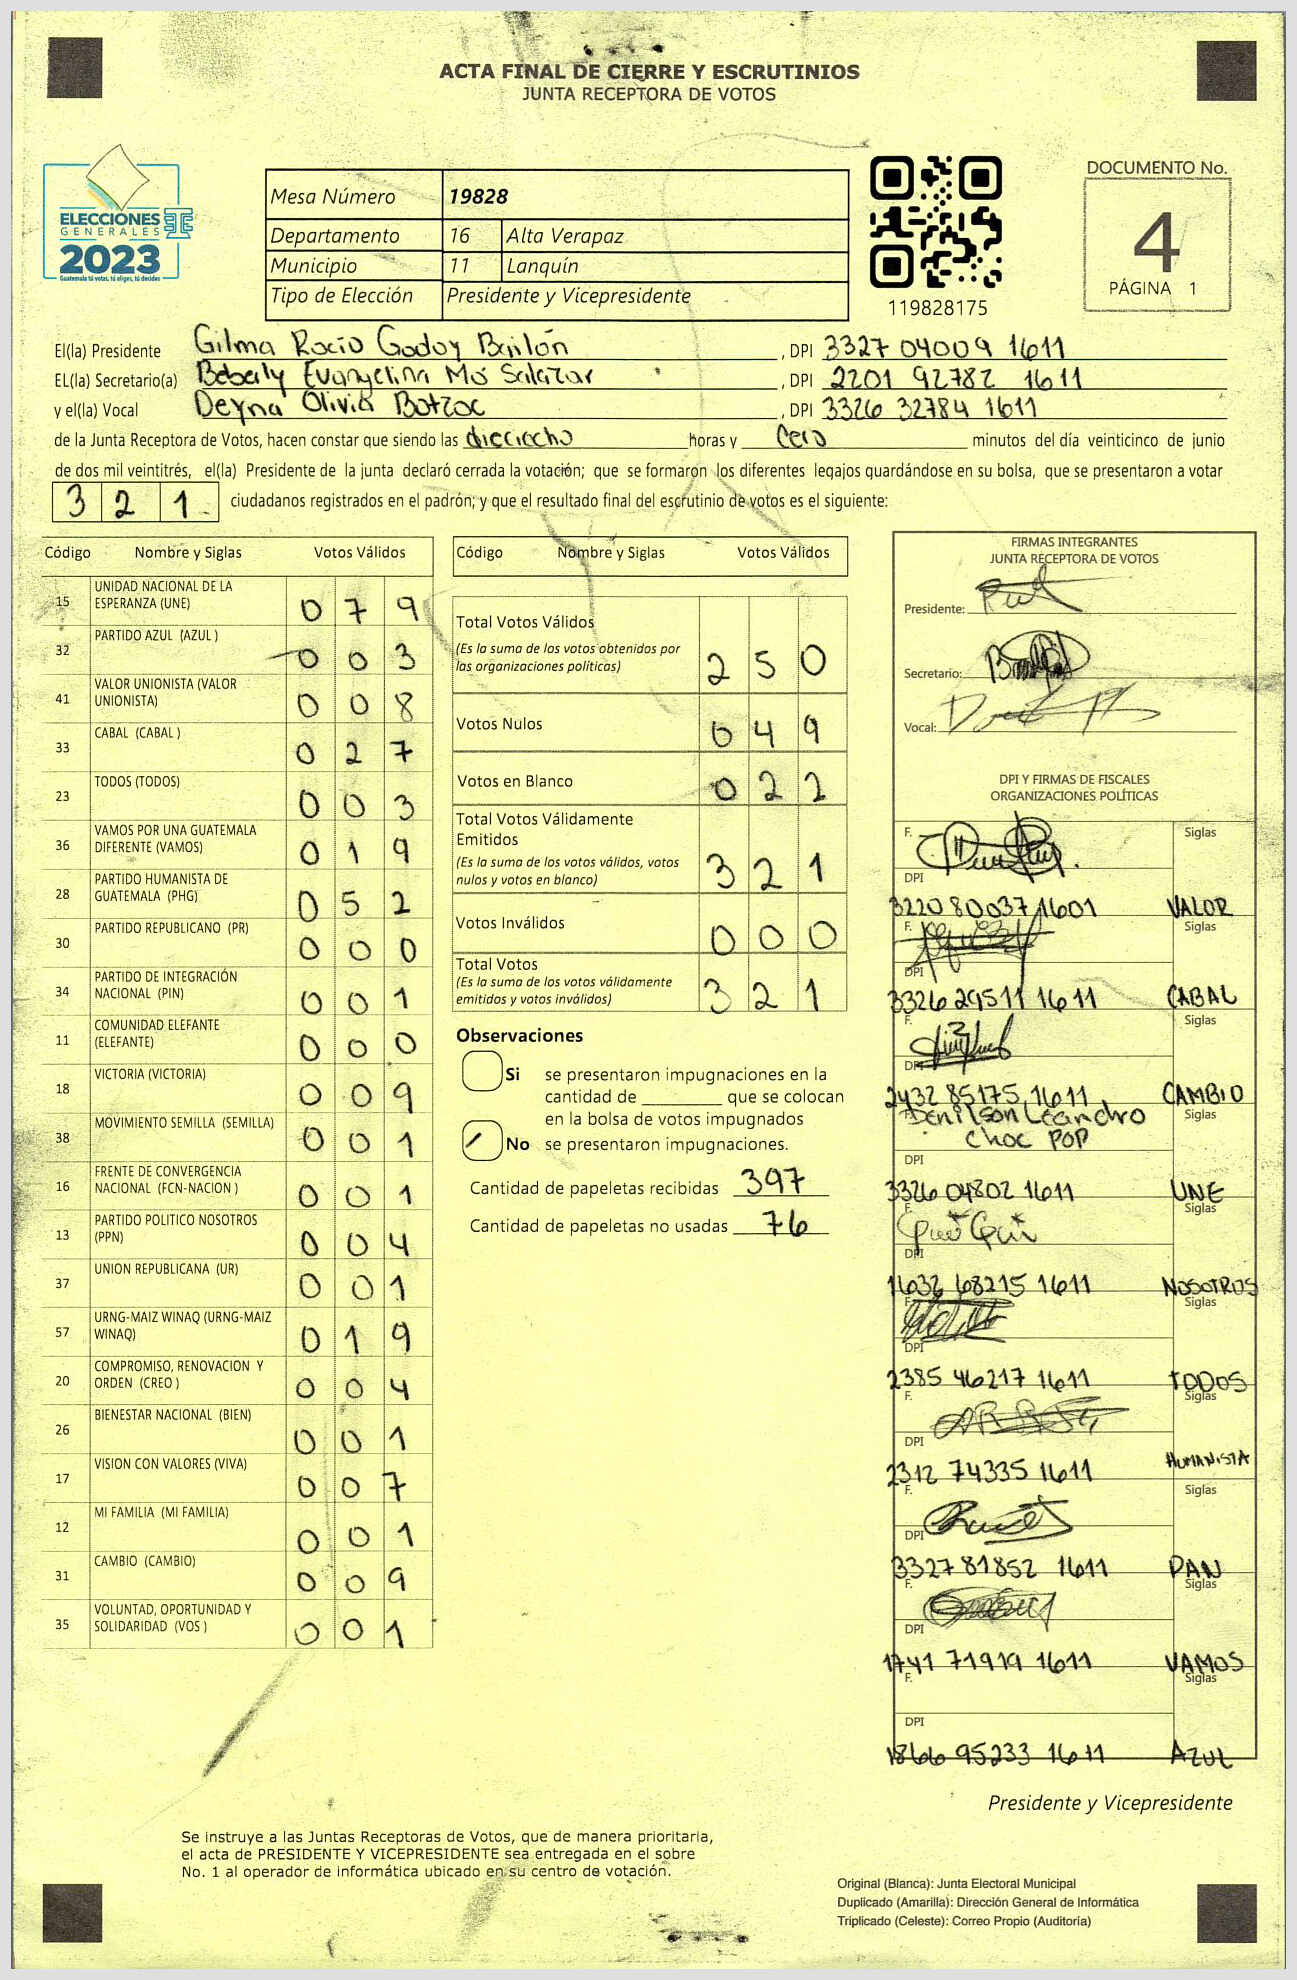 ACTA FINAL DE CIERRE Y ESCRUTINIOS
JUNTA RECEPTORA DE VOTOS
ELECCIONES
GENERALES
2023
Guatemala tú votas, tú eliges, tú decides
Mesa Número 19828
Departamento 16 Alta Verapaz
Municipio 11 Lanquín
Tipo de Elección Presidente y Vicepresidente
119828175
DOCUMENTO No.
4
PÁGINA 1
El(la) Presidente Gilma Rocío Godoy Bailón , DPI 3327 04009 1611
EL(la) Secretario(a) Beberly Evangelina Mó Salazar , DPI 2201 92782 1611
y el(la) Vocal Deyna Olivia Botzoc , DPI 3326 32784 1611
de la Junta Receptora de Votos, hacen constar que siendo las dieciocho horas y cero minutos del día veinticinco de junio
de dos mil veintitrés, el(la) Presidente de la junta declaró cerrada la votación; que se formaron los diferentes legajos guardándose en su bolsa, que se presentaron a votar
321 ciudadanos registrados en el padrón; y que el resultado final del escrutinio de votos es el siguiente:
Código Nombre y Siglas Votos Válidos
15 UNIDAD NACIONAL DE LA ESPERANZA (UNE) 079
32 PARTIDO AZUL (AZUL ) 003
41 VALOR UNIONISTA (VALOR UNIONISTA) 008
33 CABAL (CABAL ) 027
23 TODOS (TODOS) 003
36 VAMOS POR UNA GUATEMALA DIFERENTE (VAMOS) 019
28 PARTIDO HUMANISTA DE GUATEMALA (PHG) 052
30 PARTIDO REPUBLICANO (PR) 000
34 PARTIDO DE INTEGRACIÓN NACIONAL (PIN) 001
11 COMUNIDAD ELEFANTE (ELEFANTE) 000
18 VICTORIA (VICTORIA) 009
38 MOVIMIENTO SEMILLA (SEMILLA) 001
16 FRENTE DE CONVERGENCIA NACIONAL (FCN-NACION ) 001
13 PARTIDO POLITICO NOSOTROS (PPN) 004
37 UNION REPUBLICANA (UR) 001
57 URNG-MAIZ WINAQ (URNG-MAIZ WINAQ) 019
20 COMPROMISO, RENOVACION Y ORDEN (CREO ) 004
26 BIENESTAR NACIONAL (BIEN) 001
17 VISION CON VALORES (VIVA) 007
12 MI FAMILIA (MI FAMILIA) 001
31 CAMBIO (CAMBIO) 009
35 VOLUNTAD, OPORTUNIDAD Y SOLIDARIDAD (VOS ) 001
Código Nombre y Siglas Votos Válidos
Total Votos Válidos
(Es la suma de los votos obtenidos por
las organizaciones políticas) 250
Votos Nulos 049
Votos en Blanco 022
Total Votos Válidamente
Emitidos
(Es la suma de los votos válidos, votos
nulos y votos en blanco) 321
Votos Inválidos 000
Total Votos
(Es la suma de los votos válidamente
emitidos y votos inválidos) 321
Observaciones
Si se presentaron impugnaciones en la
cantidad de ________ que se colocan
en la bolsa de votos impugnados
No se presentaron impugnaciones.
Cantidad de papeletas recibidas 397
Cantidad de papeletas no usadas 76
FIRMAS INTEGRANTES
JUNTA RECEPTORA DE VOTOS
Presidente:
Secretario:
Vocal:
DPI Y FIRMAS DE FISCALES
ORGANIZACIONES POLÍTICAS
F. Siglas
DPI
3220 80037 1601 VALOR
F. Siglas
DPI
3326 29511 1611 CABAL
F. Siglas
DPI
2432 85175 1611 CAMBIO
F. Denilson Leandro Siglas
Choc POP
DPI
3326 04802 1611 UNE
F. Siglas
DPI
1632 68215 1611 NOSOTROS
F. Siglas
DPI
2385 46217 1611 TODOS
F. Siglas
DPI
2312 74335 1611 HUMANISTA
F. Siglas
DPI
3327 81852 1611 PAN
F. Siglas
DPI
1741 71919 1611 VAMOS
F. Siglas
DPI
1866 95233 1611 AZUL
Presidente y Vicepresidente
Se instruye a las Juntas Receptoras de Votos, que de manera prioritaria,
el acta de PRESIDENTE Y VICEPRESIDENTE sea entregada en el sobre
No. 1 al operador de informática ubicado en su centro de votación.
Original (Blanca): Junta Electoral Municipal
Duplicado (Amarilla): Dirección General de Informática
Triplicado (Celeste): Correo Propio (Auditoría)